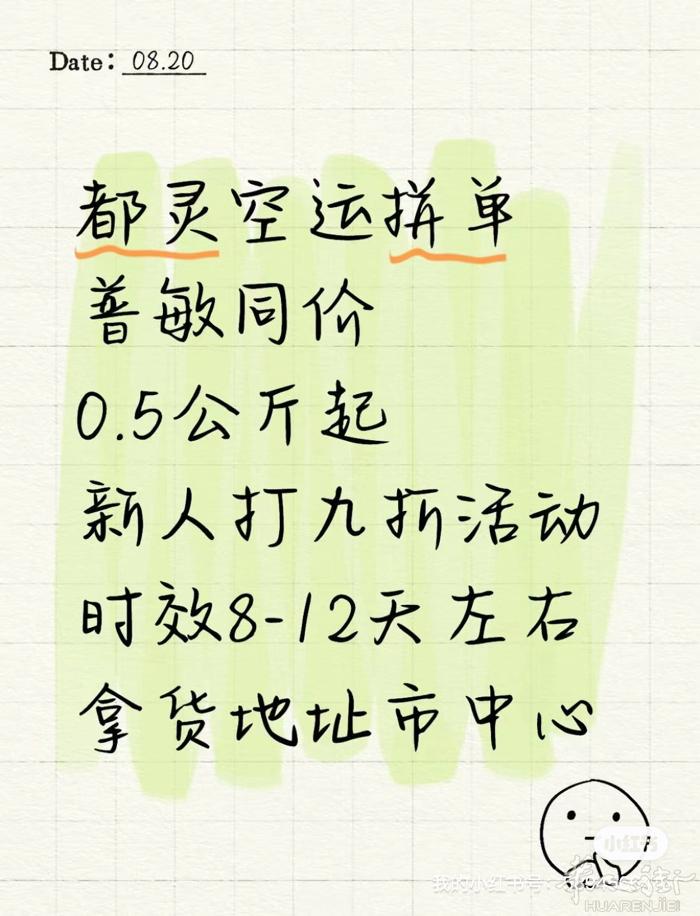 Date: 08.20
都灵空运拼单
普敏同价
0.5公斤起
新人打九折活动
时效8-12天左右
拿货地址市中心
小红书
我的小红书号:
华人街
HUARENJIE